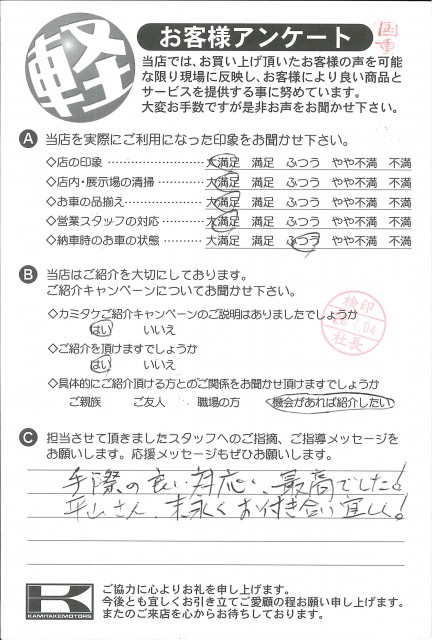 国重
軽
お客様アンケート
当店では、お買い上げ頂いたお客様の声を可能
な限り現場に反映し、お客様により良い商品と
サービスを提供する事に努めています。
大変お手数ですが是非お声をお聞かせ下さい。
A 当店を実際にご利用になった印象をお聞かせ下さい。
◇店の印象 大満足 満足 ふつう やや不満 不満
◇店内・展示場の清掃 大満足 満足 ふつう やや不満 不満
◇お車の品揃え 大満足 満足 ふつう やや不満 不満
◇営業スタッフの対応 大満足 満足 ふつう やや不満 不満
◇納車時のお車の状態 大満足 満足 ふつう やや不満 不満
B 当店はご紹介を大切にしております。
ご紹介キャンペーンについてお聞かせ下さい。
◇カミタケご紹介キャンペーンのご説明はありましたでしょうか
はい いいえ
◇ご紹介を頂けますでしょうか
はい いいえ
◇具体的にご紹介頂ける方とのご関係をお聞かせ頂けますでしょうか
ご親族 ご友人 職場の方 機会があれば紹介したい
検印
社長
C 担当させて頂きましたスタッフへのご指摘、ご指導メッセージを
お願いします。応援メッセージもぜひお願いします。
手際の良い対応い、最高でした!
平山さん、末永くお付き合い宜しく!
K
KAMITAKEMOTORS
ご協力に心よりお礼を申し上げます。
今後とも宜しくお引き立てご愛顧の程お願い申し上げます。
またのご来店を心からお待ちしております。